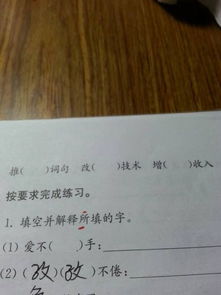 推( )词句 改( )技术 增( )收入
按要求完成练习。
1. 填空并解释所填的字。
(1) 爱不( )手:
(2) (孜)(孜)不倦: